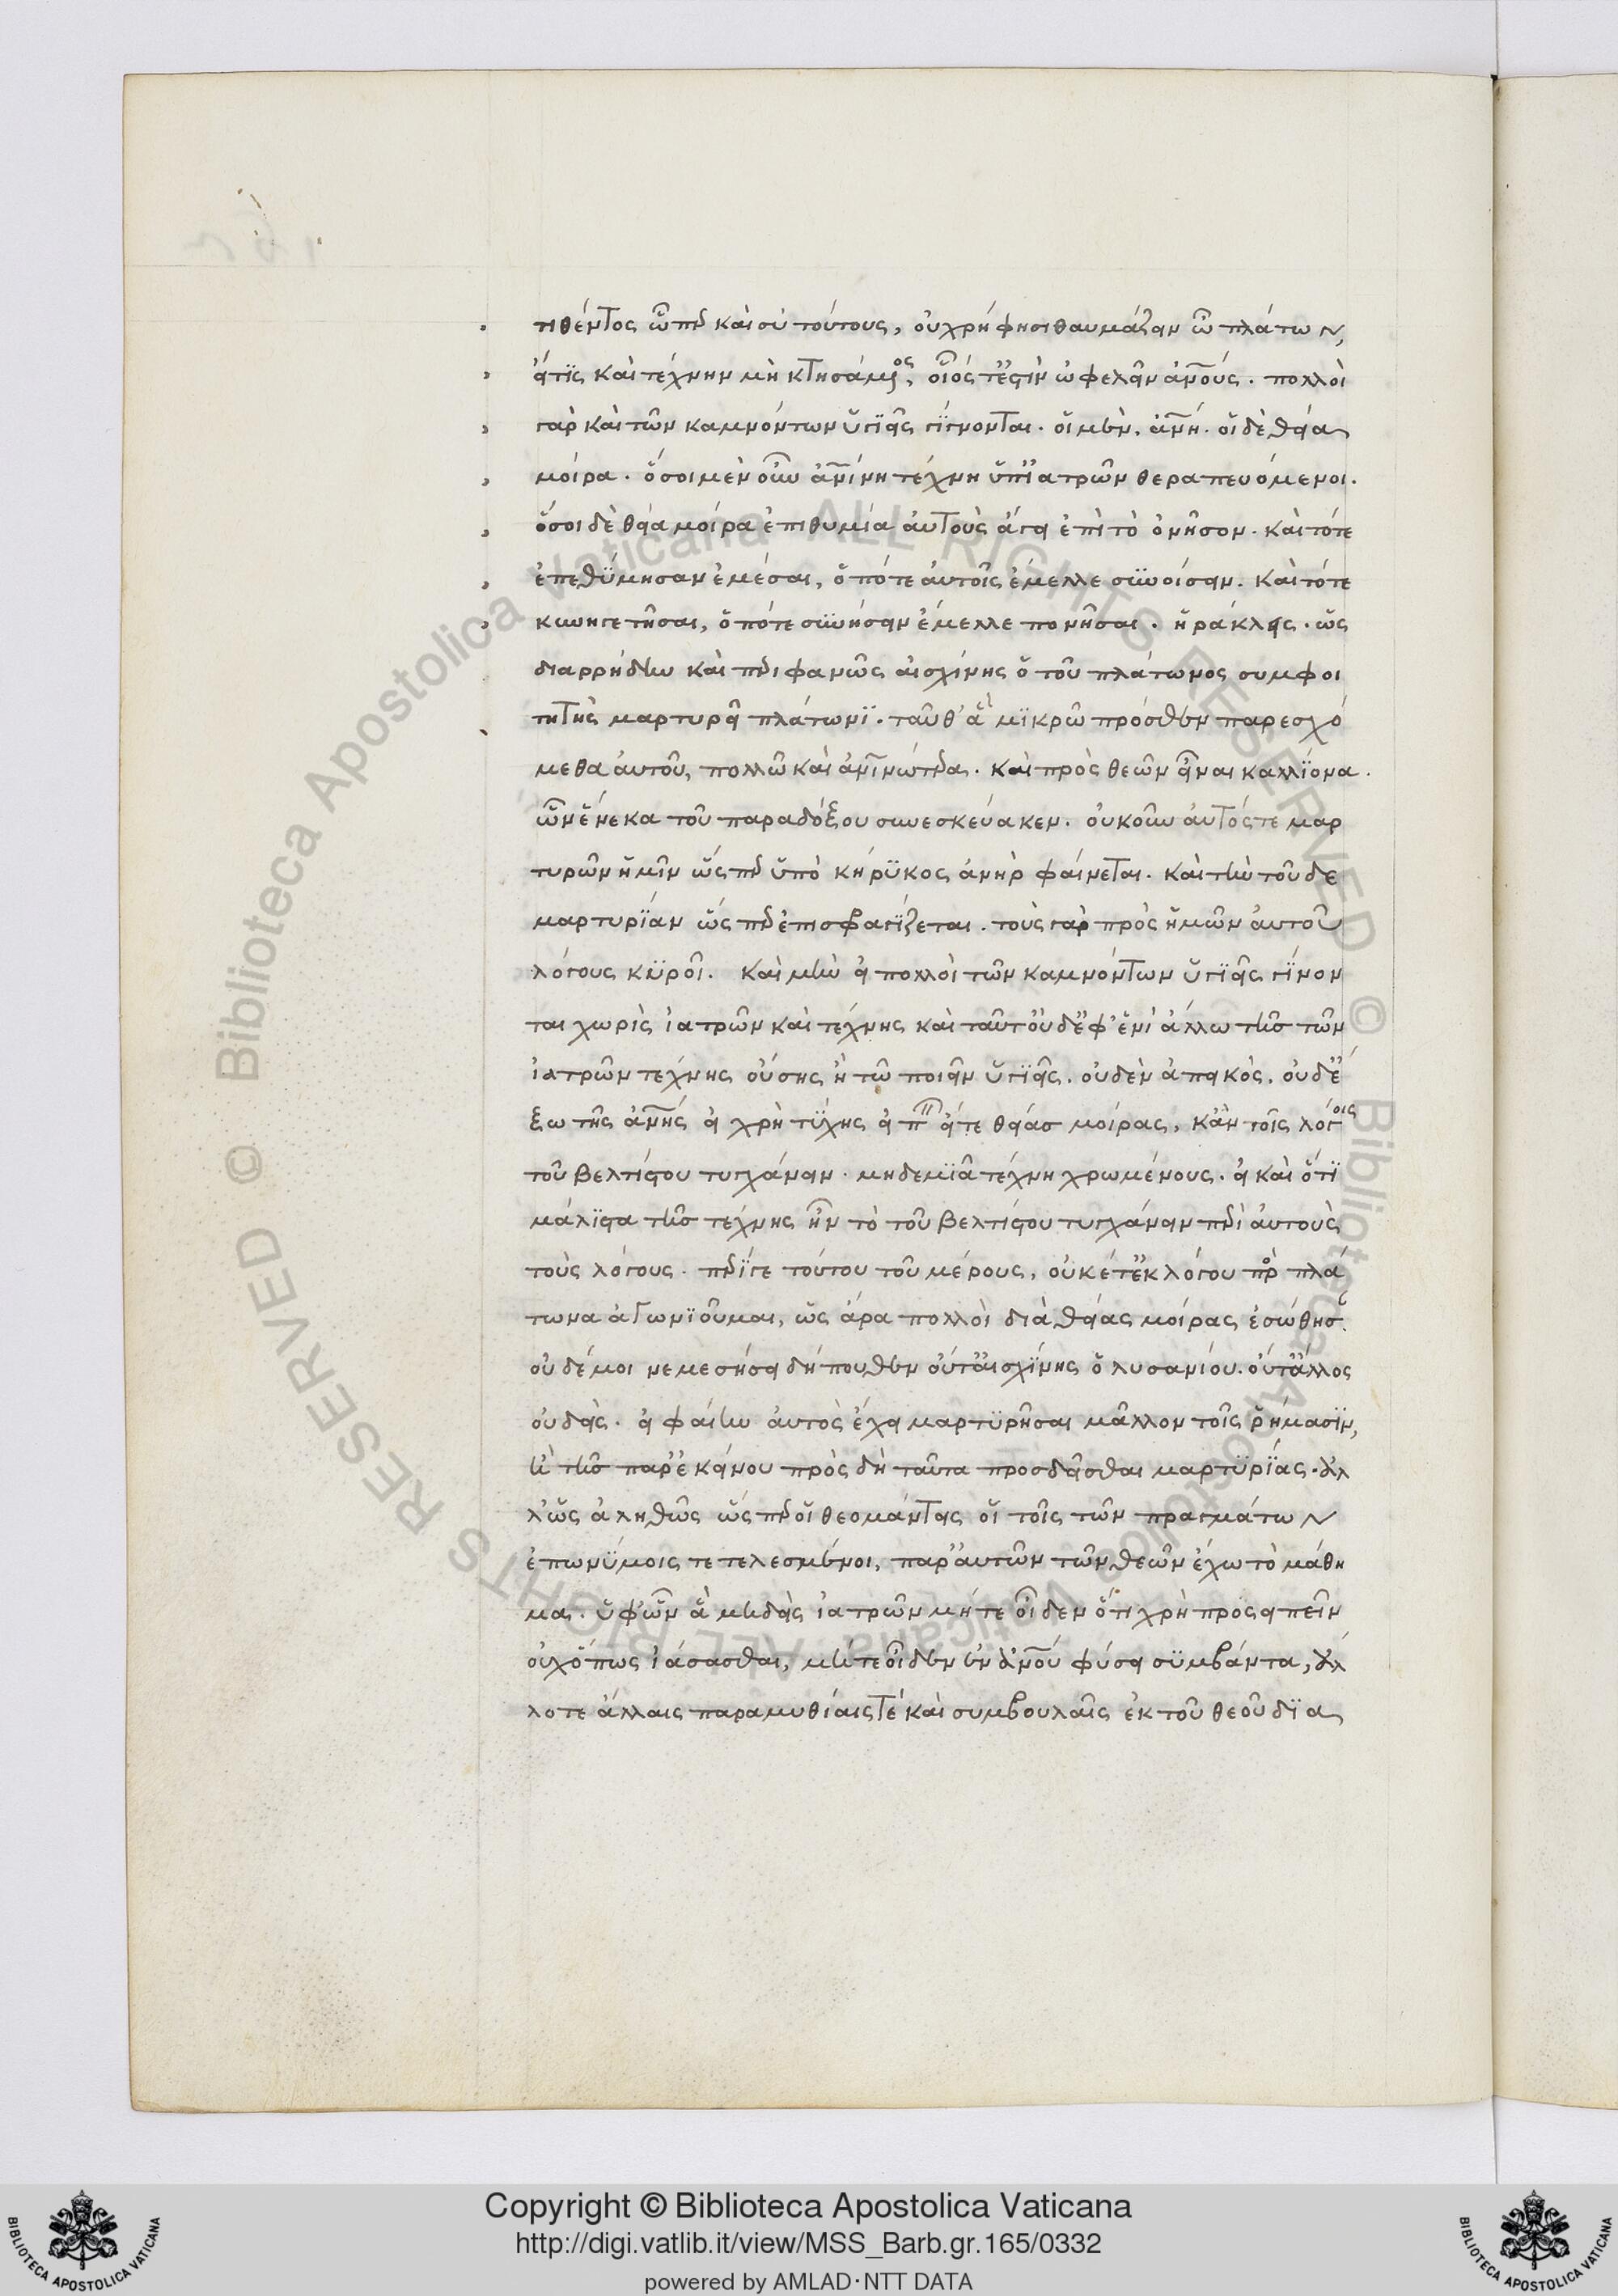 τιθέντος ὥσπερ καὶ σὺ τούτους, οὐ χρή φησι θαυμάζειν ὦ πλάτων,
εἴ τις καὶ τέχνην μὴ κτησάμενος, οἷός τ' ἐστὶν ὠφελεῖν ἀνους. πολλοὶ
γὰρ καὶ τῶν καμνόντων ὑγιεῖς γίγνονται. οἱ μὲν, ἀνη. οἱ δὲ θεία
μοίρα. ὅσοι μὲν οὖν ἀνίνη τέχνη ὑπ' ἰατρῶν θεραπευόμενοι.
ὅσοι δὲ θεία μοίρα ἐπιθυμία αὐτοὺς ἄγει ἐπὶ τὸ ὀνῆσον. καὶ τότε
ἐπεθύμησαν ἐμέσαι, ὁπότε αὐτοῖς ἔμελλε συνοίσειν. καὶ τότε
κυνηγετῆσαι, ὁπότε συνήσειν ἔμελλε πονῆσαι. ἡράκλεις. ὡς
διαρρήδην καὶ περιφανῶς αἰσχίνης ὁ τοῦ πλάτωνος συμφοι
τητὴς μαρτυρεῖ πλάτωνι. ταῦθ' ἃ μικρῶ πρόσθεν παρεσχό
μεθα αὐτοῦ, πολλῶ καὶ ἀνινώτερα. καὶ πρὸς θεῶν εἶναι καλλίονα.
ὧν ἕνεκα τοῦ παραδόξου συνεσκεύακεν. οὐκοῦν αὐτός τε μαρ
τυρῶν ἡμῖν ὥσπερ ὑπὸ κήρυκος ἀνὴρ φαίνεται. καὶ τὴν τοῦδε
μαρτυρίαν ὥσπερ ἐπισφραγίζεται. τοὺς γὰρ πρὸς ἡμῶν αὐτοῦ
λόγους κυροῖ. καὶ μὴν εἰ πολλοὶ τῶν καμνόντων ὑγιεῖς γίνον
ται χωρὶς ἰατρῶν καὶ τέχνης καὶ ταῦτ' οὐδ' ἐφ' ἑνὶ ἄλλω τῆς τῶν
ἰατρῶν τέχνης οὔσης ἢ τῶ ποιεῖν ὑγιεῖς. οὐδὲν ἀπεικὸς. οὐδ' ἔ
ξω τῆς ἀνης εἰ χρὴ τύχης εἰπεῖν εἴτε θείας μοίρας, κἀν τοῖς λόγοις
τοῦ βελτίστου τυγχάνειν. μηδεμιᾶ τέχνη χρωμένους. εἰ καὶ ὅτι
μάλιστα τῆς τέχνης ἦν τὸ τοῦ βελτίστου τυγχάνειν περὶ αὐτοὺς
τοὺς λόγους. περί γε τούτου τοῦ μέρους, οὐκέτ' ἐκ λόγου πρὸς πλά
τωνα ἀγωνιοῦμαι, ὡς ἄρα πολλοὶ διὰ θείας μοίρας ἐσώθησαν.
οὐδέ μοι νεμεσήσει δήπουθεν οὔτ' αἰσχίνης ὁ λυσανίου. οὔτ' ἄλλος
οὐδεὶς. εἰ φαίην αὐτὸς ἔχει μαρτυρῆσαι μᾶλλον τοῖς ῥήμασιν,
ἢ τῆς παρ' ἐκείνου πρὸς δὴ ταῦτα προσδεῖσθαι μαρτυρίας. ἀλ
λ' ὡς ἀληθῶς ὥσπερ οἱ θεομάντεις οἱ τοῖς τῶν πραγμάτων
ἐπωνύμοις τετελεσμένοι, παρ' αὐτῶν τῶν θεῶν ἔχω τὸ μάθη
μα. ὑφ' ὧν ἃ μηδεὶς ἰατρῶν μήτε οἶδεν ὅτι χρὴ προσειπεῖν
οὐχ ὅπως ἰάσασθαι, μήτε οἶδεν ἐν ἀνου φύσει συμβάντα, ἄλ
λοτε ἄλλαις παραμυθίαις τὲ καὶ συμβουλαῖς ἐκ τοῦ θεοῦ δια
Copyright © Biblioteca Apostolica Vaticana
http://digi.vatlib.it/view/MSS_Barb.gr.165/0332
powered by AMLAD·NTT DATA